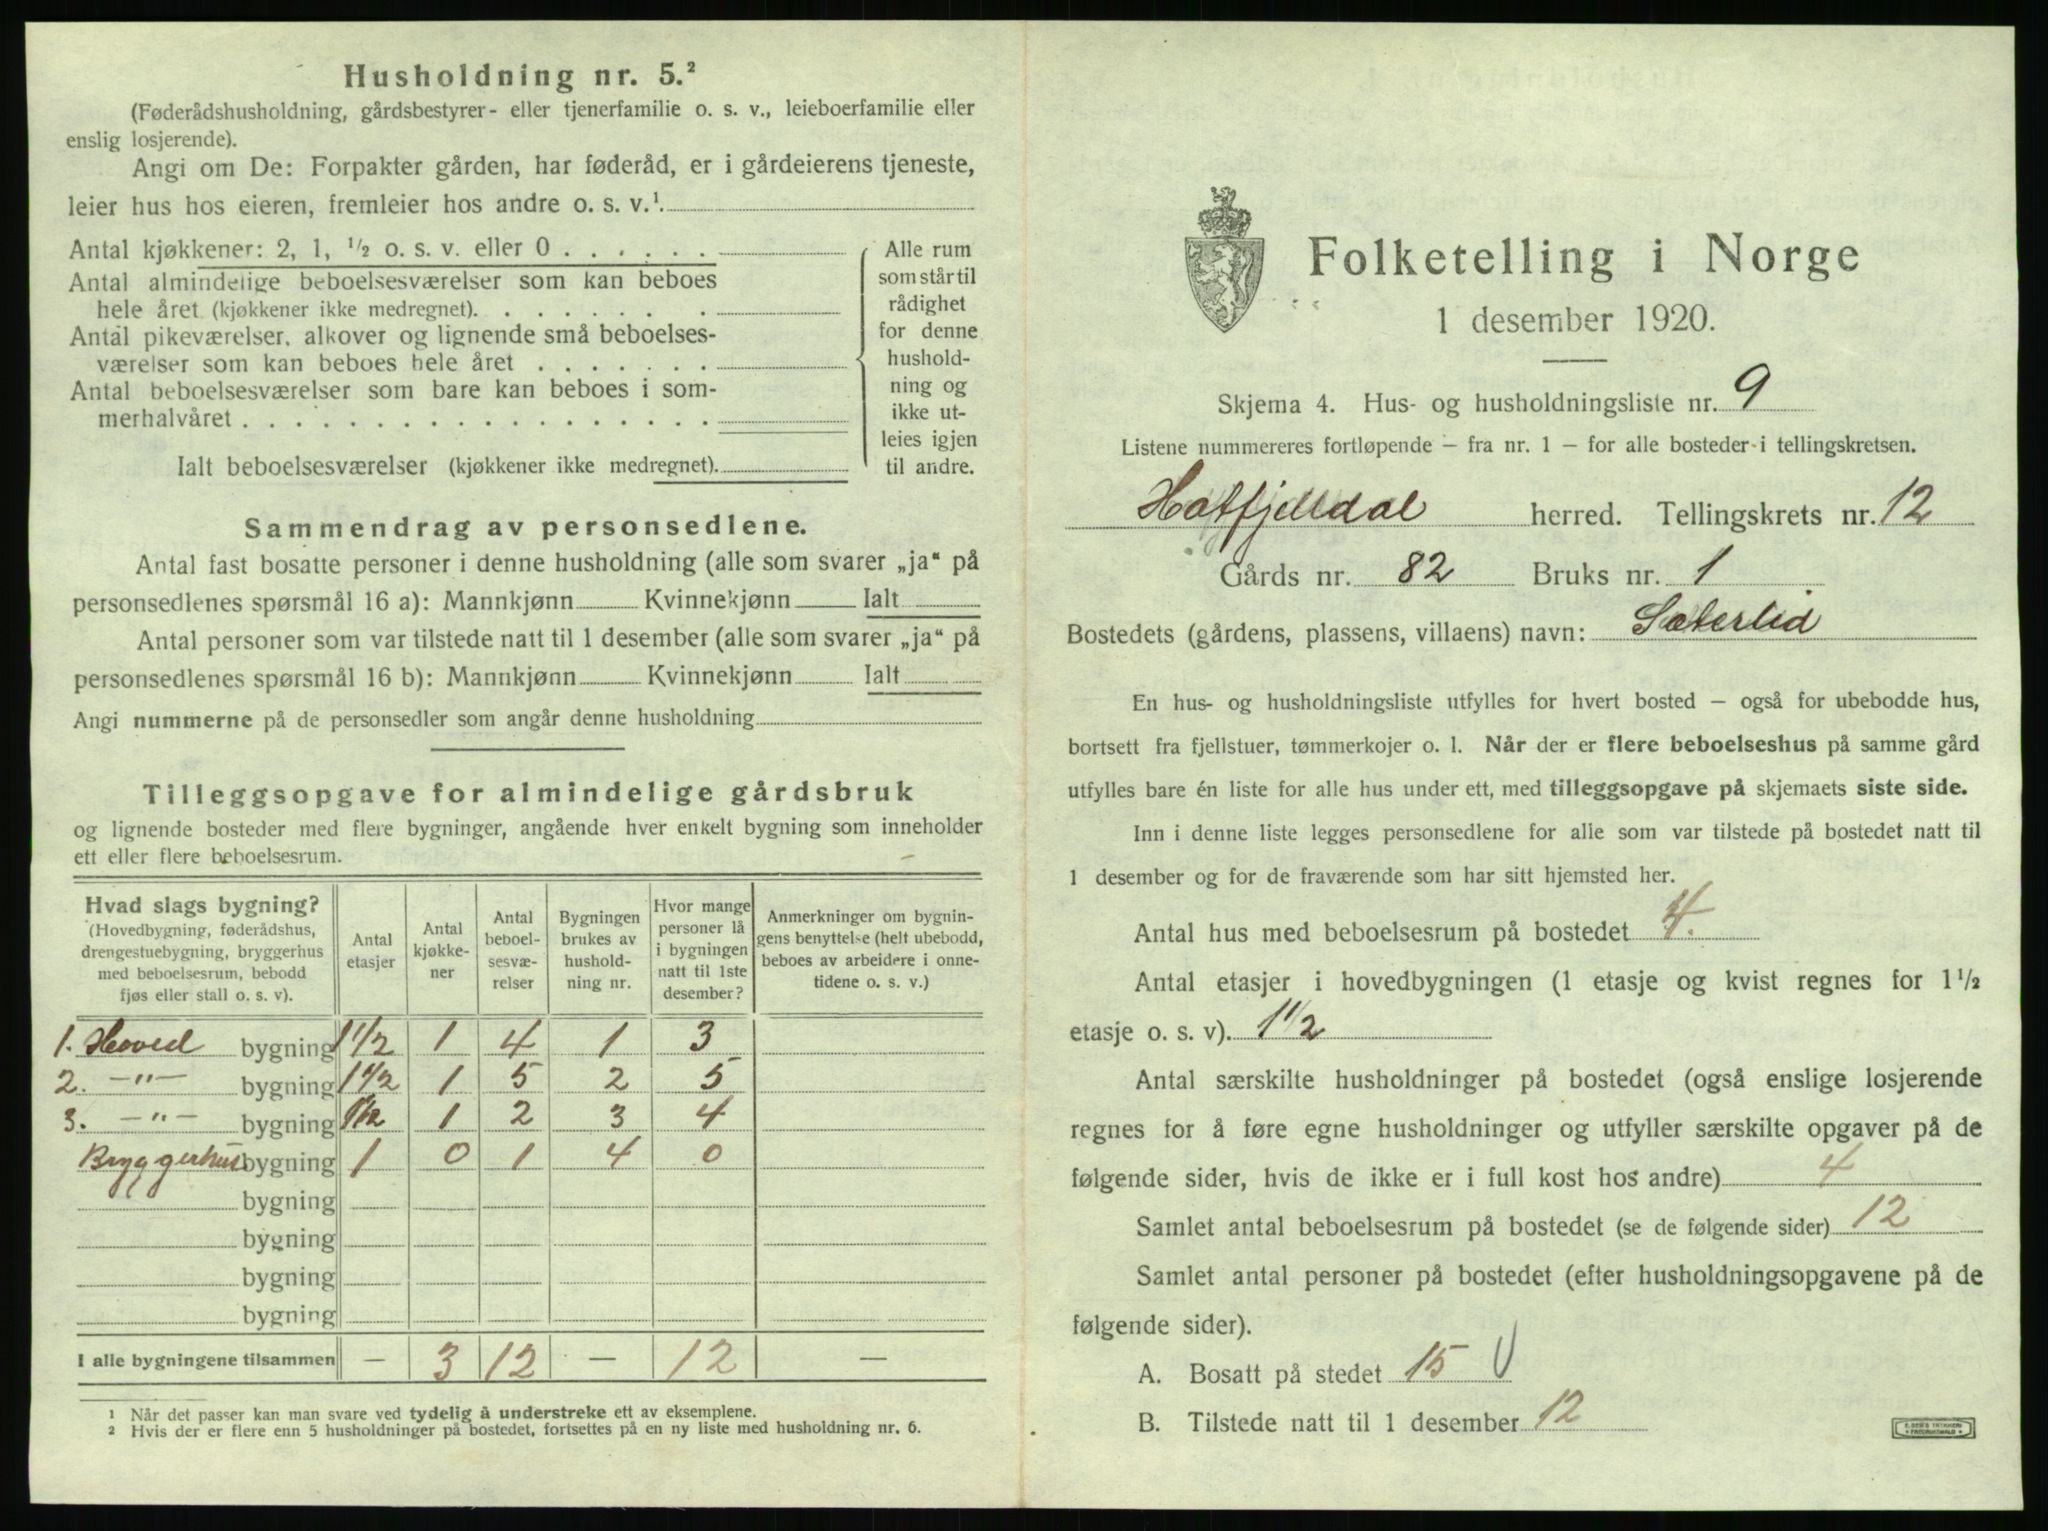 Husholdning nr. 5.²
(Føderådshusholdning, gårdsbestyrer- eller tjenerfamilie o. s. v., leieboerfamilie eller
enslig losjerende).
Angi om De: Forpakter gården, har føderåd, er i gårdeierens tjeneste,
leier hus hos eieren, fremleier hos andre o. s. v.¹
Antal kjøkkener: 2, 1, ½ o. s. v. eller 0 . . . . . .
Antal almindelige beboelsesværelser som kan beboes
hele året (kjøkkener ikke medregnet). . . . . . . .
Antal pikeværelser, alkover og lignende små beboelses-
værelser som kan beboes hele året . . . . . . .
Antal beboelsesværelser som bare kan beboes i som-
merhalvåret . . . . . . . . . . . . . . . . . .
Ialt beboelsesværelser (kjøkkener ikke medregnet).
Alle rum
som står til
rådighet
for denne
hushold-
ning og
ikke ut-
leies igjen
til andre.
Sammendrag av personsedlene.
Antal fast bosatte personer i denne husholdning (alle som svarer „ja“ på
personsedlenes spørsmål 16 a): Mannkjønn Kvinnekjønn Ialt
Antal personer som var tilstede natt til 1 desember (alle som svarer „ja“ på
personsedlenes spørsmål 16 b): Mannkjønn Kvinnekjønn Ialt
Angi nummerne på de personsedler som angår denne husholdning
Tilleggsopgave for almindelige gårdsbruk
og lignende bosteder med flere bygninger, angående hver enkelt bygning som inneholder
ett eller flere beboelsesrum.
Hvad slags bygning?
(Hovedbygning, føderådshus,
drengestuebygning, bryggerhus
med beboelsesrum, bebodd
fjøs eller stall o. s. v).
Antal
etasjer
Antal
kjøkke-
ner
Antal
beboel-
sesvæ-
relser
Bygningen
brukes av
hushold-
ning nr.
Hvor mange
personer lå
i bygningen
natt til 1ste
desember?
Anmerkninger om bygnin-
gens benyttelse (helt ubebodd,
beboes av arbeidere i onne-
tidene o. s. v.)
1. Hoved bygning 1 1/2 1 4 1 3
2. —"— bygning 1 1/2 1 5 2 5
3. —"— bygning 1 1/2 1 2 3 4
Bryggerhus bygning 1 0 1 4 0
bygning
bygning
bygning
bygning
I alle bygningene tilsammen — 3 12 — 12 —
¹ Når det passer kan man svare ved tydelig å understreke ett av eksemplene.
² Hvis der er flere enn 5 husholdninger på bostedet, fortsettes på en ny liste med husholdning nr. 6.
Folketelling i Norge
1 desember 1920.
Skjema 4. Hus- og husholdningsliste nr. 9
Listene nummereres fortløpende — fra nr. 1 — for alle bosteder i tellingskretsen.
Hatfjelldal herred. Tellingskrets nr. 12
Gårds nr. 82 Bruks nr. 1
Bostedets (gårdens, plassens, villaens) navn: Sæterlid
En hus- og husholdningsliste utfylles for hvert bosted — også for ubebodde hus,
bortsett fra fjellstuer, tømmerkojer o. l. Når der er flere beboelseshus på samme gård
utfylles bare én liste for alle hus under ett, med tilleggsopgave på skjemaets siste side.
Inn i denne liste legges personsedlene for alle som var tilstede på bostedet natt til
1 desember og for de fraværende som har sitt hjemsted her.
Antal hus med beboelsesrum på bostedet 4.
Antal etasjer i hovedbygningen (1 etasje og kvist regnes for 1½
etasje o. s. v). 1 1/2
Antal særskilte husholdninger på bostedet (også enslige losjerende
regnes for å føre egne husholdninger og utfyller særskilte opgaver på de
følgende sider, hvis de ikke er i full kost hos andre) 4
Samlet antal beboelsesrum på bostedet (se de følgende sider) 12
Samlet antal personer på bostedet (efter husholdningsopgavene på de
følgende sider).
A. Bosatt på stedet 15
B. Tilstede natt til 1 desember 12